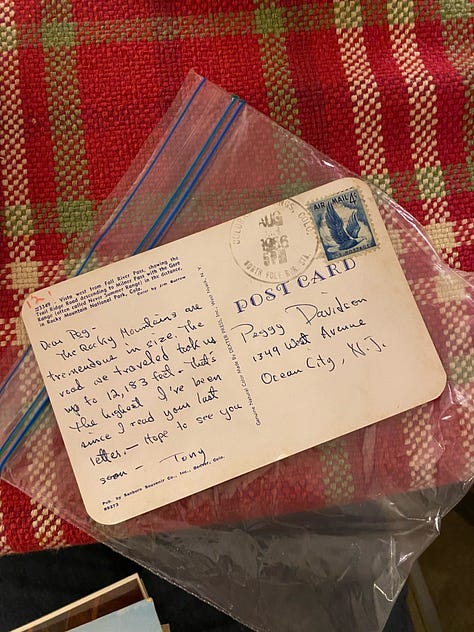 Vista west from Fall River Pass, showing the
Trail Ridge Road descending to Milner Pass with the Gore
Range (often called Never Summer Range) in the distance,
in Rocky Mountain National Park, Colo.
Color by Jim
Dear Peg-
The Rocky Mountains are
tremendous in size. The
road we traveled took us
up to 12,183 feet - that's
the highest I've been
since I read your last
letter. - Hope to see you
soon - Tony
Pub. by Sanborn Souvenir Co., Inc., Denver, Colo.
Genuine Natural Color Made By DEXTER PRESS, INC.
COLORADO SPRINGS COLO.
AUG
1956
PM
NORTH POLE
AIR MAIL 4¢
POST CARD
Peggy Davidson
1349 West Avenue
Ocean City, N.J.